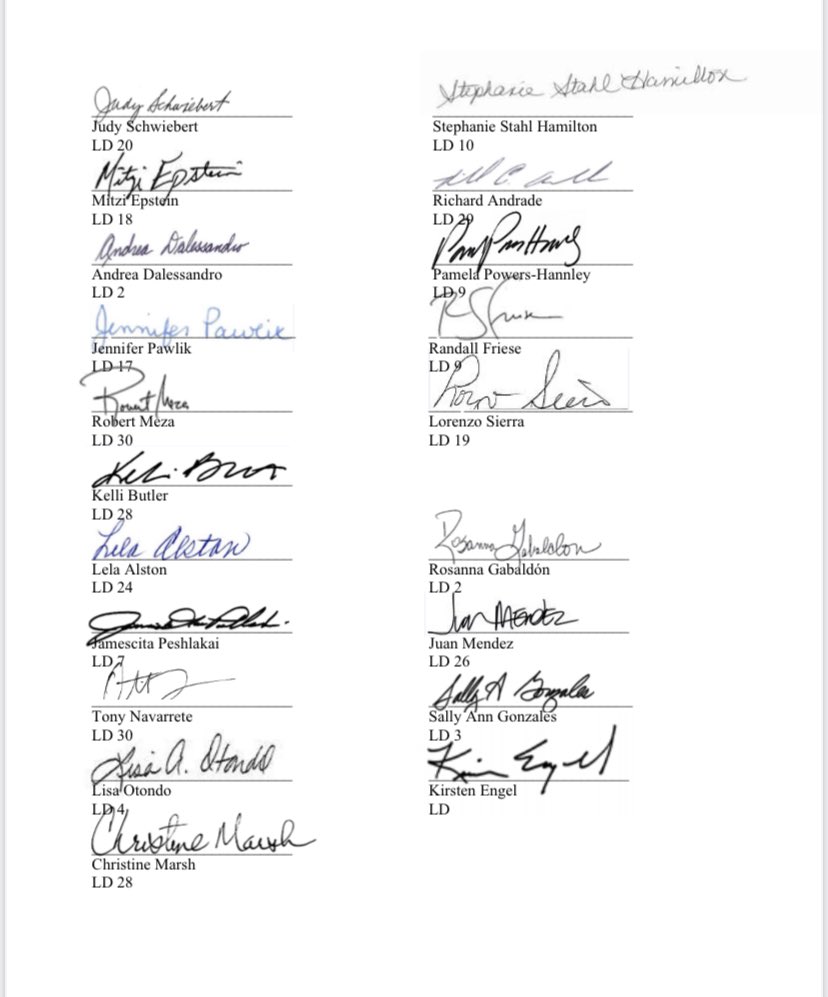 Judy Schwiebert
Judy Schwiebert
LD 20
Mitzi Epstein
Mitzi Epstein
LD 18
Andrea Dalessandro
Andrea Dalessandro
LD 2
Jennifer Pawlik
Jennifer Pawlik
LD 17
Robert Meza
Robert Meza
LD 30
Kelli Butler
LD 28
Lela Alston
Lela Alston
LD 24
Jamescita Peshlakai
LD 7
Tony Navarrete
LD 30
Lisa A. Otondo
Lisa Otondo
LD 4
Christine Marsh
Christine Marsh
LD 28
Stephanie Stahl Hamilton
Stephanie Stahl Hamilton
LD 10
Richard Andrade
LD 29
Pamela Powers-Hannley
LD 9
Randall Friese
LD 9
Lorenzo Sierra
LD 19
Rosanna Gabaldon
Rosanna Gabaldón
LD 2
Juan MENDEZ
Juan Mendez
LD 26
Sally A Gonzales
Sally Ann Gonzales
LD 3
Kirsten Engel
LD